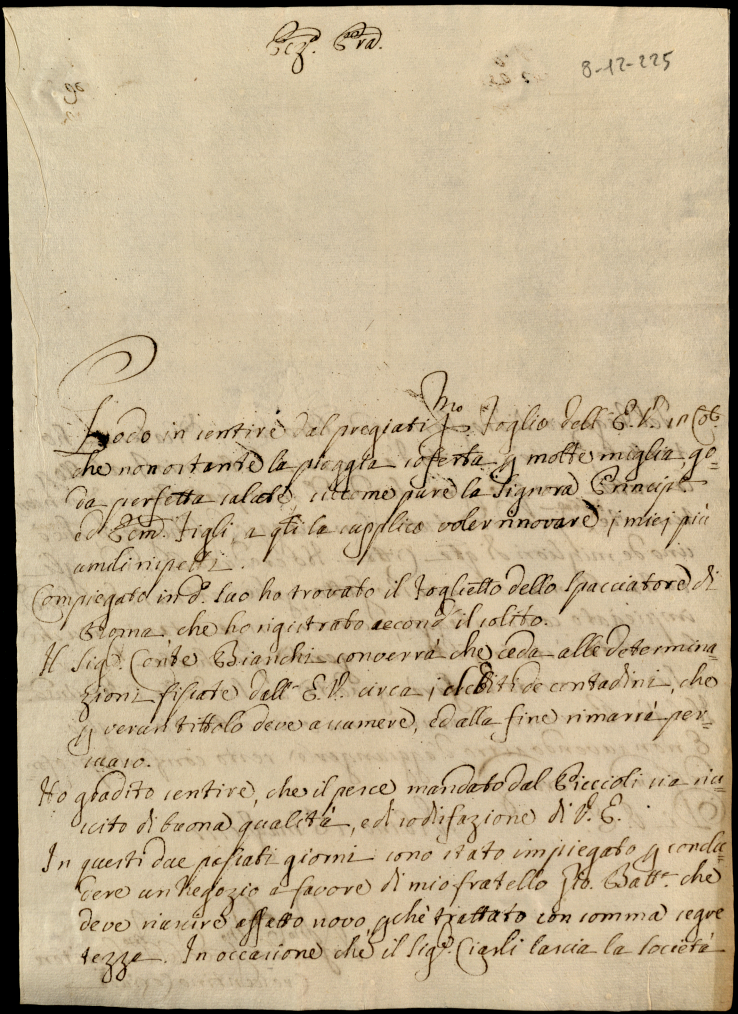 Ecz.ª P.rã.
8-12-225
Godo in sentire dal pregiatiss.mo Foglio dell'E.V. in Cot.
che nonostante la pioggia soferta p molte miglia, go-
da perfetta salute, siccome pure la Signora Princip.ª
ed Ecm. Figli, a q̃ti la supplico voler rinovare i miei più
umili rispetti.
Compiegato in d.º suo ho trovato il Foglietto dello Spacciatore di
Roma che ho rigistrato second.º il solito.
Il Sig.r Conte Bianchi converrà che ceda alle determina-
zioni fissate dall'E.V. circa i debiti de contadini, che
p verun tittolo deve assumere, ed alla fine rimarrà per-
suaso.
Ho gradito sentire, che il pesce mandato dal Piccioli sia riu-
scito di buona qualità, e di sodisfazione di V.E.
In questi due passati giorni sono stato impiegato p conclu-
dere un Negozio a favore di mio fratello Gio. Batt.ª che
deve riuscire affatto novo, p chè trattato con somma segre
tezza. In occasione che il Sig.r Ciarli lascia la Società